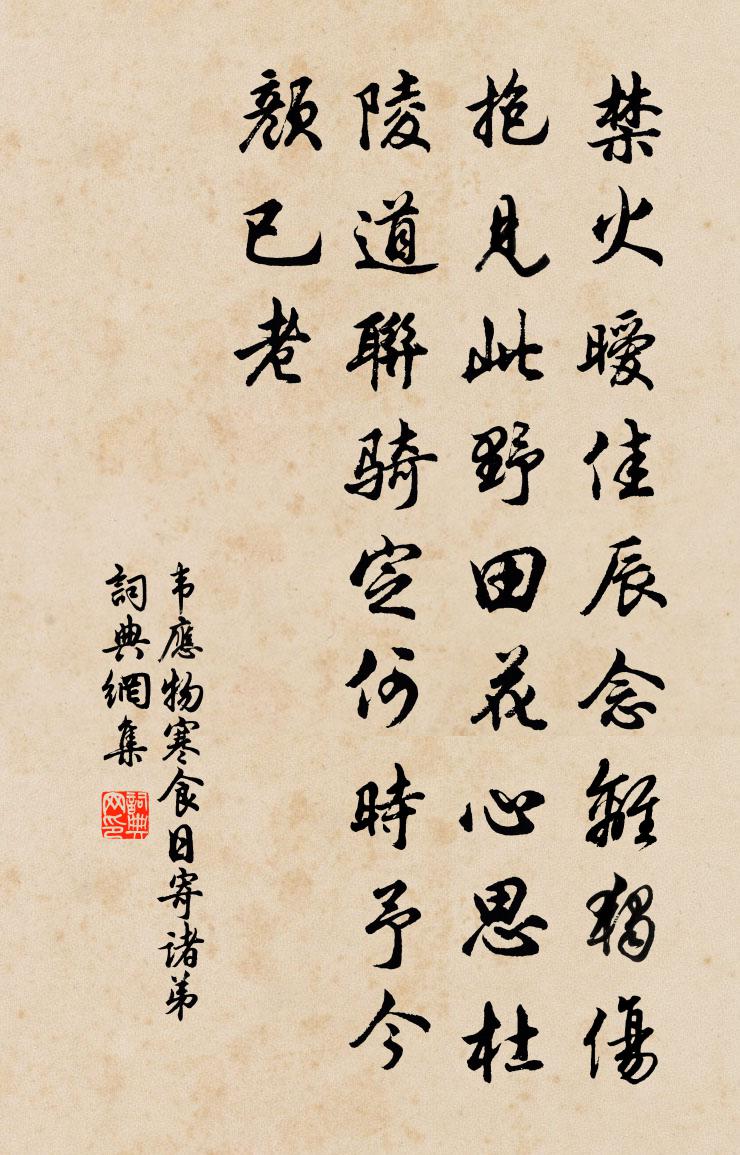 禁火曖佳辰念離獨傷
抱見此野田花心思杜
陵道聯騎定何時予今
顏已老
韦應物寒食日寄诸弟
詞典網集
詞典网印